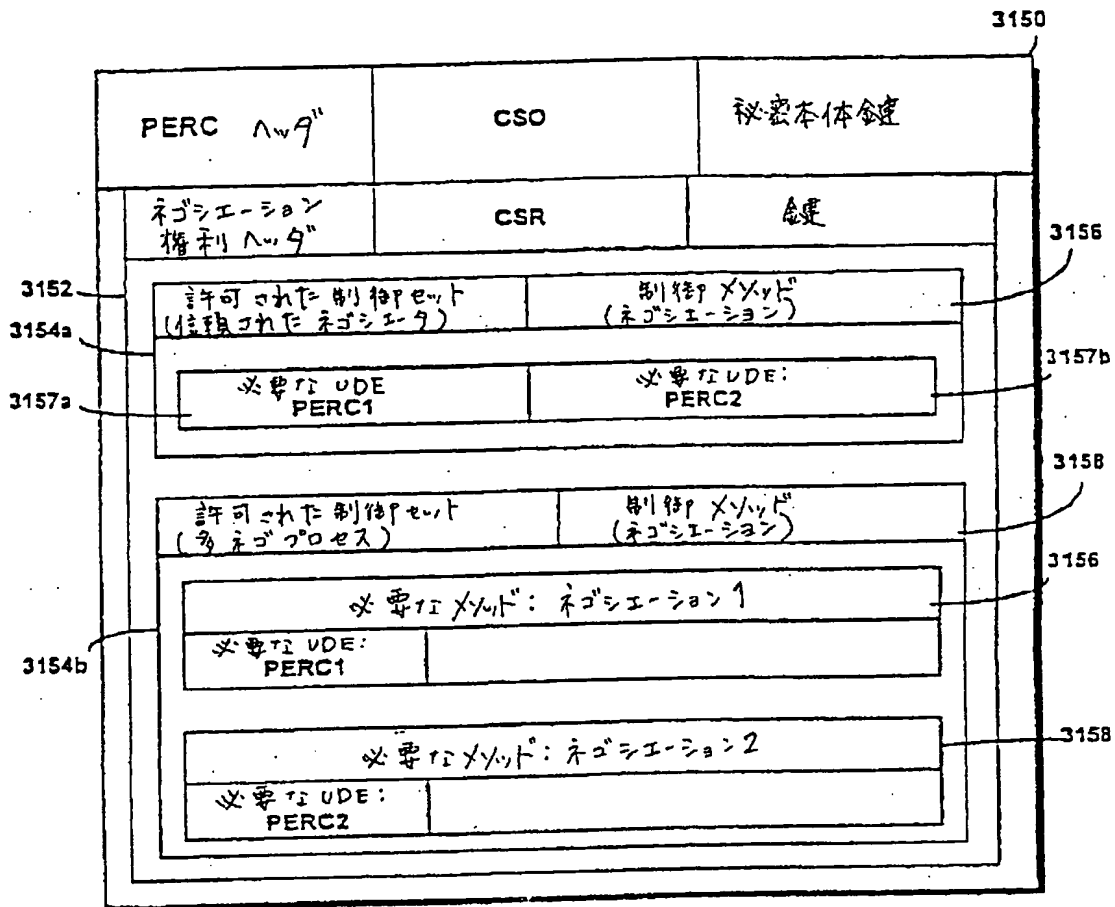 3150
PERC ヘッダ
CSO
秘密本体鍵
ネゴシエーション
権利ヘッダ
CSR
鍵
3156
3152
許可された制御セット
(信頼されたネゴシエータ)
制御メソッド
(ネゴシエーション)
3154a
3157b
必要なUDE
PERC1
必要なUDE:
PERC2
3157a
3158
許可された制御セット
(多ネゴプロセス)
制御メソッド
(ネゴシエーション)
3156
必要なメソッド: ネゴシエーション1
必要なUDE:
PERC1
3154b
3158
必要なメソッド: ネゴシエーション2
必要なUDE:
PERC2